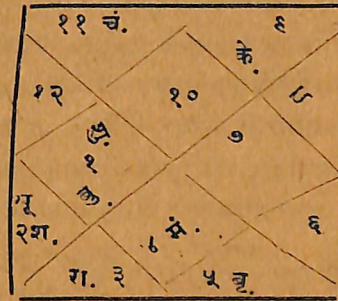 ११ चं.
६
के.
१२
१०
७
शु.
१
बु.
सू
२श.
मं.
६
रा. ३
५ बृ.